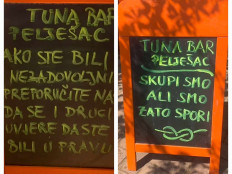 TUNA BAR
PELJEŠAC
AKO STE BILI
NEZADOVOLJNI
PREPORUČITE NA
DA SE I DRUGI
UVJERE DA STE
BILI U PRAVU
TUNA BAR
PELJEŠAC
SKUPI SMO
ALI SMO
ZATO SPORI